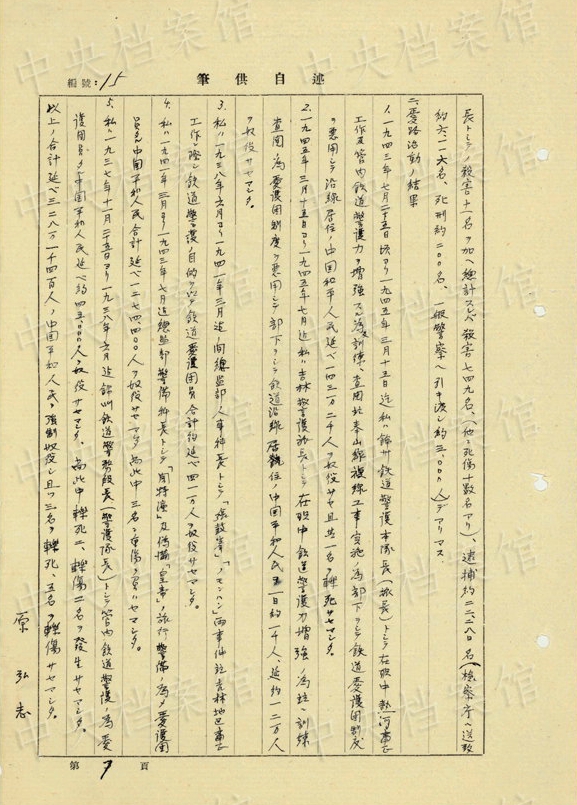 中央档案馆
述自供筆
編號:15
長トシテノ殺害十一名ヲ加ヘ総計スレバ殺害七四九名、(他ニ死傷十数名アリ)、逮捕約二二二八名(検察庁ヘ送致
約六一六名、死刑約二〇〇名、一般警察ヘ引キ渡シ約三、〇〇〇人)デアリマス。
二 愛路活動ノ結果
1. 一九四三年七月二十五日頃ヨリ一九四五年三月十五日迄私ハ錦州鉄道警護本隊長(旅長)トシテ在職中熱河粛正
工作並管内鉄道警護力ヲ増強スル為訓練、査閲北奉山線複線工事実施ノ為部下ヲシテ鉄道愛護団制度
ヲ悪用シテ沿線居住ノ中国和平人民延ベ一四三一万二千人ヲ奴役サセ且其一名ヲ轢死サセマシタ。
2. 一九四五年三月十五日ヨリ一九四五年七月迄私ハ吉林警護旅長トシテ在職中鉄道警護力増強ノ為
査閲ノ為愛護団制度ヲ悪用シテ部下ヲシテ鉄道沿線居住ノ中国平和人民 一日約一千人、延約一二万人
ヲ奴役サセマシタ。
3. 私ハ一九三八年六月ヨリ一九四一年三月迄 間総監部人事科長トシテ 「ノモンハン」両事件並吉林地区粛正
工作ノ際シ鉄道警護ノ目的ヲ以テ鉄道愛護団員合計約延ベ四一万人ヲ奴役サセマシタ。
4. 私ハ一九四一年三月ヨリ一九四三年七月迄総監部警備科長トシテ「関特演」及偽満「皇帝」ノ旅行警備ノ為メ愛護団
員タル中国平和人民合計延ベ一二七四四〇〇人ヲ奴役サセマシタ 尚此中三名ニ重傷ヲ負ハサセマシタ。
5. 私ハ一九三七年十一月二十五日ヨリ一九三八年六月迄錦州鉄道警務段長(警護隊長)トシテ管内鉄道警護ノ為愛
護団員タル中国平和人民延ベ約四五、〇〇〇人ヲ奴役サセマシタ。尚此中轢死二、轢傷二名ヲ発生サセマシタ。
以上ノ合計延ベ三二八万一千四百人ノ中国平和人民ヲ強制奴役シ且ツ三名ヲ轢死、五名ヲ轢傷サセマシタ。
原弘志
第 7 頁